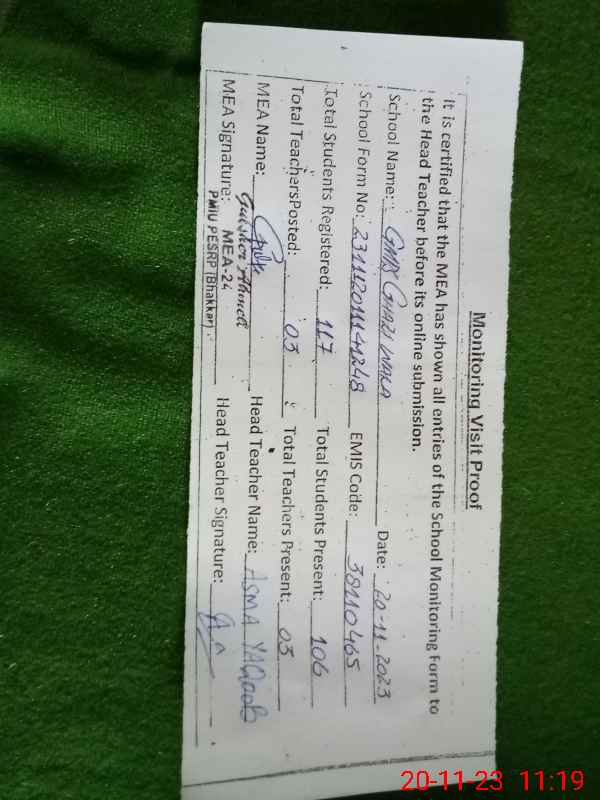 Monitoring Visit Proof
It is certified that the MEA has shown all entries of the School Monitoring Form to
the Head Teacher before its online submission.
School Name: GMPS Date: 20-11-2023
School Form No: EMIS Code: 38110465
Total Students Registered: 117 Total Students Present: 106
Total TeachersPosted: 03 Total Teachers Present: 03
MEA Name: Head Teacher Name: ASMA YAQOOB
MEA Signature: Gulsher Ahmed Head Teacher Signature:
MEA-24
PMIU PESRP (Bhakkar)
20-11-23 11:19